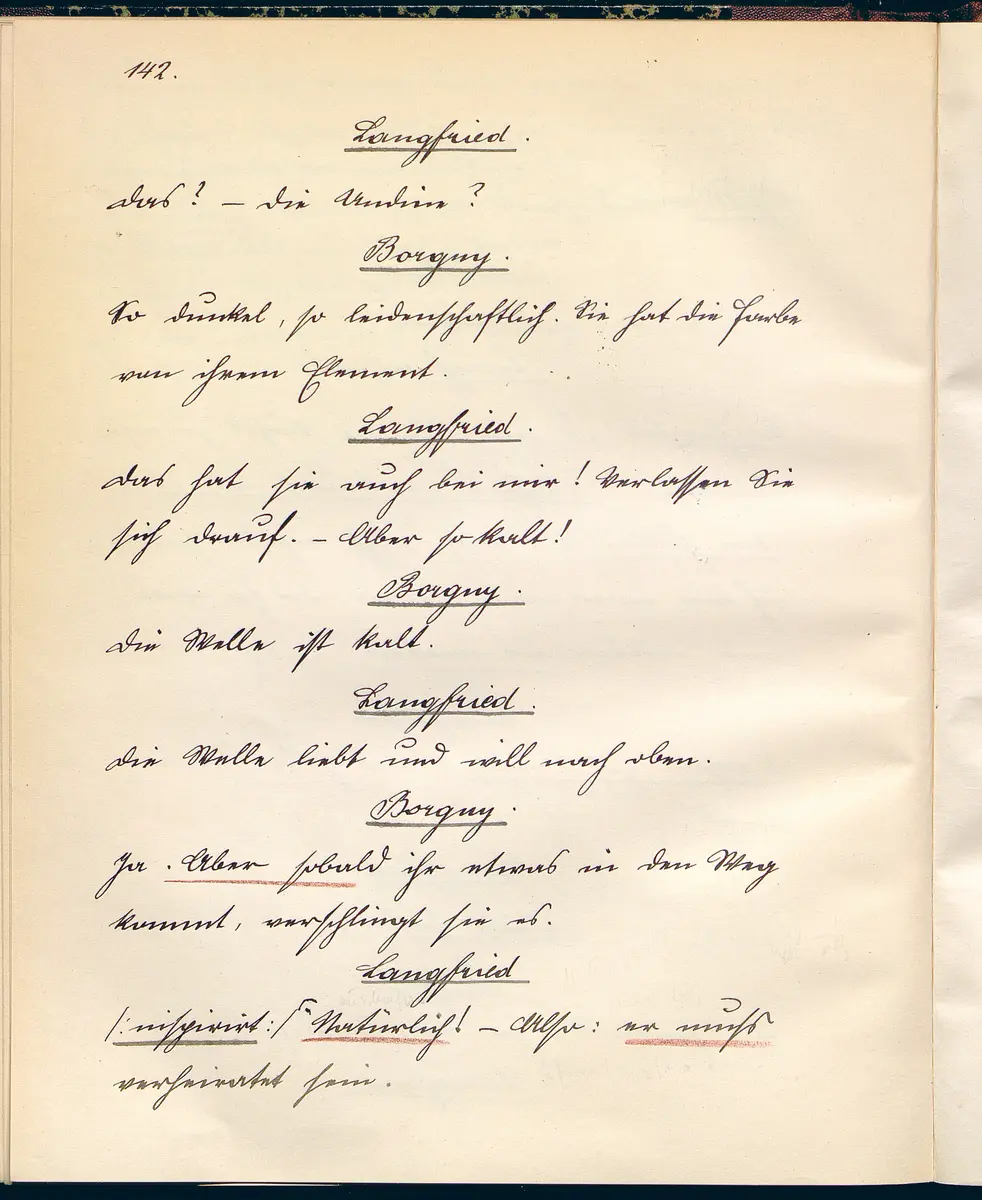 142.
Langfried.
Das? – Die Undine?
Borgny.
So dunkel, so leidenschaftlich. Sie hat die Farbe
von ihrem Element.
Langfried.
Das hat sie auch bei mir! Verlassen Sie
sich drauf. – Aber so kalt!
Borgny.
Die Welle ist kalt.
Langfried.
Die Welle liebt und will nach oben.
Borgny.
Ja. Aber sobald ihr etwas in den Weg
kommt, verschlingt sie es.
Langfried
/: inspirirt :/ Natürlich! – Also: er muss
verheiratet sein.